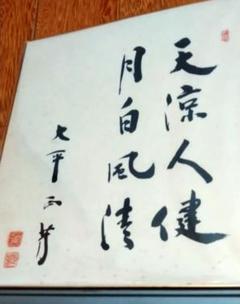 天涼人健
月白風清
大平正芳